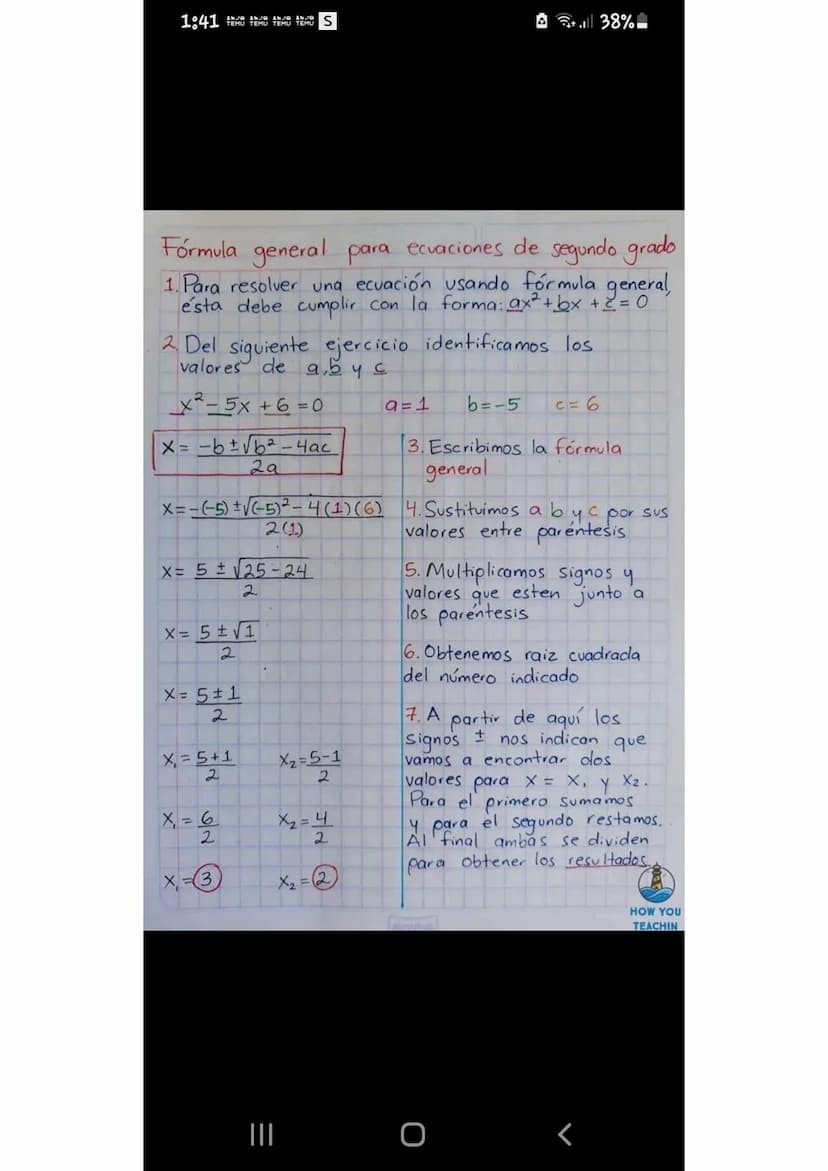 1:41 TEMU TEMU TEMU TEMU S 38%
Fórmula general para ecuaciones de segundo grado
1. Para resolver una ecuación usando fórmula general,
ésta debe cumplir con la forma: ax² + bx + c = 0
2. Del siguiente ejercicio identificamos los
valores de a, b y c
x² - 5x + 6 = 0 a=1 b=-5 c=6
x = -b ± √b² - 4ac
2a
3. Escribimos la fórmula
general
x = -(-5) ± √(-5)² - 4(1)(6)
2(1)
4. Sustituimos a b y c por sus
valores entre paréntesis
x = 5 ± √25 - 24
2
5. Multiplicamos signos y
valores que esten junto a
los paréntesis
x = 5 ± √1
2
6. Obtenemos raiz cuadrada
del número indicado
x = 5 ± 1
2
x₁ = 5+1
2
x₂ = 5-1
2
x₁ = 6
2
x₂ = 4
2
x₁ = 3 x₂ = 2
7. A partir de aquí los
signos ± nos indican que
vamos a encontrar dos
valores para x = x₁ y x₂.
Para el primero sumamos
y para el segundo restamos.
Al final ambas se dividen
para obtener los resultados.
HOW YOU
TEACHIN